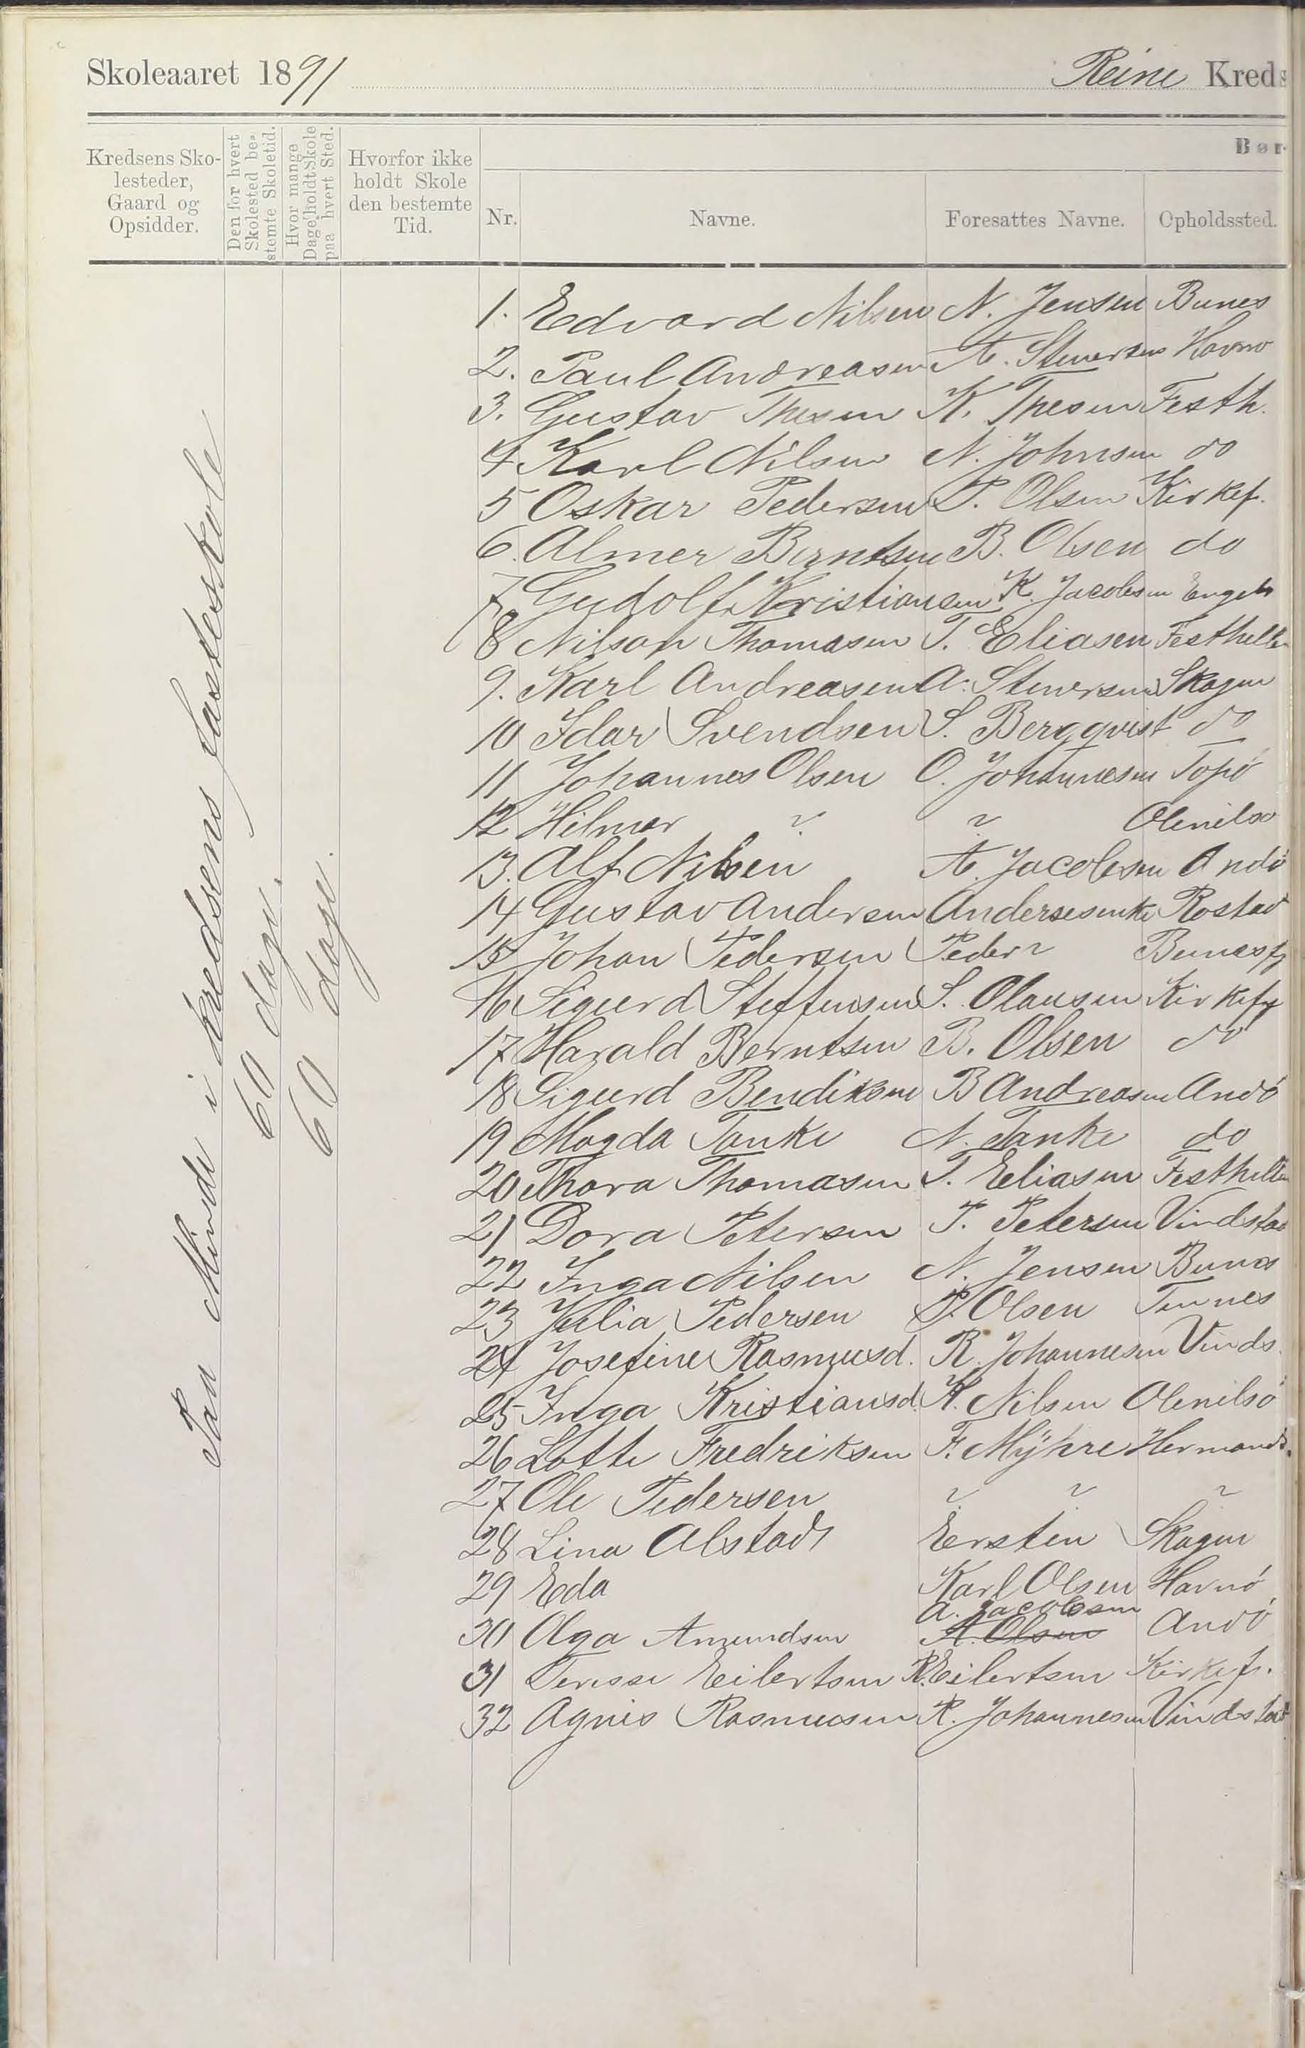 Skoleaaret 1891 Reine Kreds
Kredsens Sko-
lesteder,
Gaard og
Opsidder.
Den for hvert
Skolested be-
stemte Skoletid.
Hvor mange
Dage holdt Skole
paa hvert Sted.
Hvorfor ikke
holdt Skole
den bestemte
Tid.
Bør
Nr.
Navne.
Foresattes Navne.
Opholdssted.
Paa Minde i Kredsens faste skole
60 dage.
60 dage.
1. Edvard Nilsen N. Jensen Bunes
2. Paul Andreasen A. Stenersen Havnø
3. Gustav Thesen K. Thesen Festh.
4 Karl Nilsen N. Johnsen do
5 Oskar Pedersen P. Olsen Kirkef.
6. Almer Berntsen B. Olsen do
7 Gudolf Kristiansen K. Jacobsen
8 Nilson Thomasen T. Eliasen Festhelten
9. Karl Andreasen A. Stenersen Skagen
10 Idar Svendsen S. Bergqvist do
11 Johannes Olsen O. Johannesen Topø
12 Hilmar " " Olenilsø
13. Alf Nilsen A. Jacobsen Andø
14 Gustav Andersen Andersesenke Rostad
15 Johan Pedersen Peder " Bunesfj
16 Sigurd Steffensen S. Olausen Kirkefj
17 Harald Berntsen B. Olsen do
18 Sigurd Bendiksen B Andreasen Andø
19 Magda Tanke N. Tanke do
20 Thora Thomasen T. Eliasen Festhelten
21 Dora Petersen P. Petersen Vindstad
22 Inga Nilsen N. Jensen Bunes
23 Julia Pedersen P. Olsen Tennes
24 Josefine Rasmusd. R. Johannesen Vinds.
25 Inga Kristiansd. K. Nilsen Olenilsø
26 Lotte Fredriksen F. Mÿhre Hermands.
27 Ole Pedersen " " "
28 Lina Alstad Ersten Skagen
29 Eda Karl Olsen Havnø
A. Jacobsen
30 Olga Amundsen A. Olsen Andø
31 Teresse Eilertsen R. Eilertsen Kirkefj.
32 Agnes Rasmusen R. Johannesen Vindstad